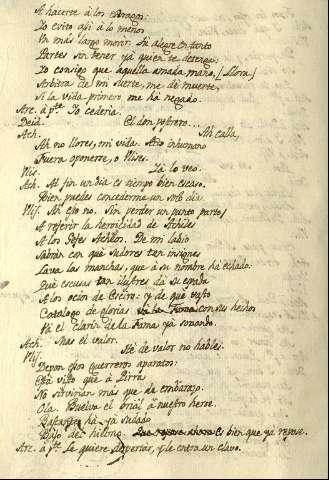 A hacerte à los estragos:
Yo evito asi à lo menos
Un mas largo morir. Tu alegre en tanto
Partes sin tener ya quien te detenga:
Yo consigo que aquella amada mano, [Llora]
Arbitra de mi suerte, me dé muerte,
Si la vida primero me ha negado.
Arc. à p.te Yo cederia.
Deid. El don postrero...
Ach. Ah calla,
Ah no llores, mi vida. Acto inhumano
Fuera oponerse, o Ulises.
Ulis. Ya lo veo.
Ach. Al fin un dia es tiempo bien escaso.
Bien puedes concederme un solo dia.
Ulis. Ah eso no. Sin perder un punto parto,
A referir la heroicidad de Achiles
A los Gefes Acheos. De mi labio
Sabràn con què sudores tan insignes
Lava las manchas, que à su nombre ha echado:
Què escusas tan ilustres dà su espada
A los ocios de Esciro: y de què vasto
Catalogo de glorias con sus hechos
Và el clarin de la Fama ya sonando.
Ach. Mas el valor.
Ulis. No de valor me hables.
Depon esos guerreros aparatos:
Esta visto que à Pirra
No serviràn mas que de embarazo.
Ola. Buelva el brial à nuestro heroe.
Bastante ha ya sudado
Bajo del hielmo. Es bien que ya repose.
Arc. à p.te Le quiere despertar, y le entra un clavo.